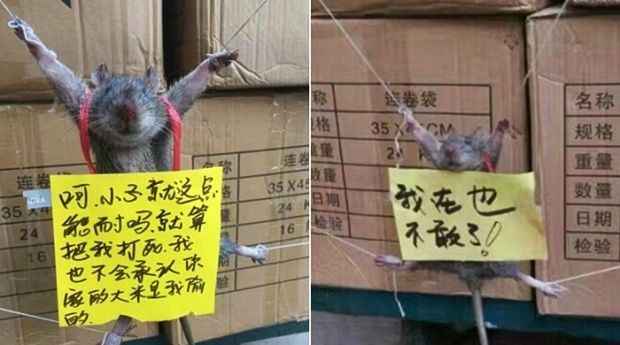 呵.小子就这点
能耐吗.就算
把我打死.我
也不会承认你
家的大米是我偷
的.
连卷袋
35
24
16
称 连卷袋
35X4
24
16
我在也
不敢了!
称 连卷袋
格 35X CM
量 24
数量
日期
检验
名称
规格
重量
数量
日期
检验